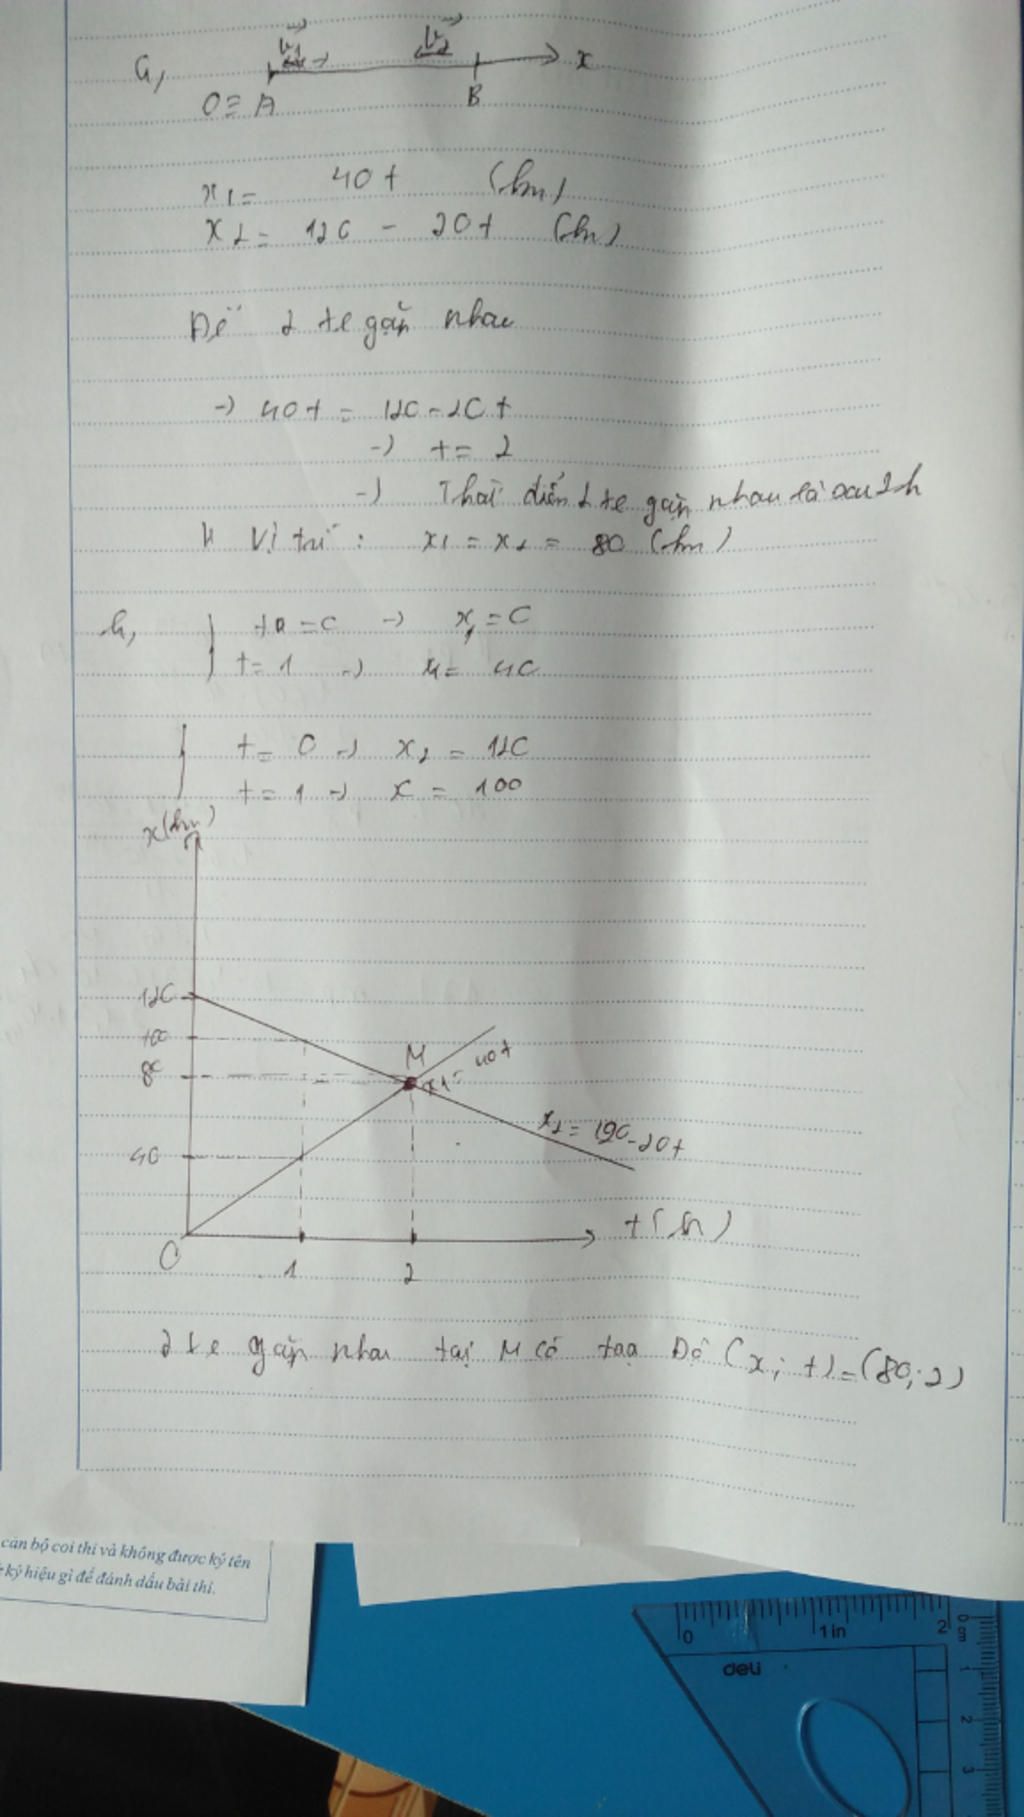 a,
v1 v2 x
O ≡ A B
x1 = 40t (km)
x2 = 120 - 20t (km)
Để 2 xe gặp nhau
-> 40t = 120 - 20t
-> t = 2
-> Thời điểm 2 xe gặp nhau là sau 2h
Vị trí : x1 = x2 = 80 (km)
b,
t = 0 -> x1 = 0
t = 1 -> x1 = 40
t = 0 -> x2 = 120
t = 1 -> x = 100
x(km)
120
100
80 M x1 = 40t
x2 = 120 - 20t
40
O 1 2 t(h)
2 xe gặp nhau tại M có toạ Độ (x; t) = (80; 2)
cán bộ coi thi và không được ký tên
ký hiệu gì để đánh dấu bài thi.
0 1in 2
deli
0 cm
1
2
3